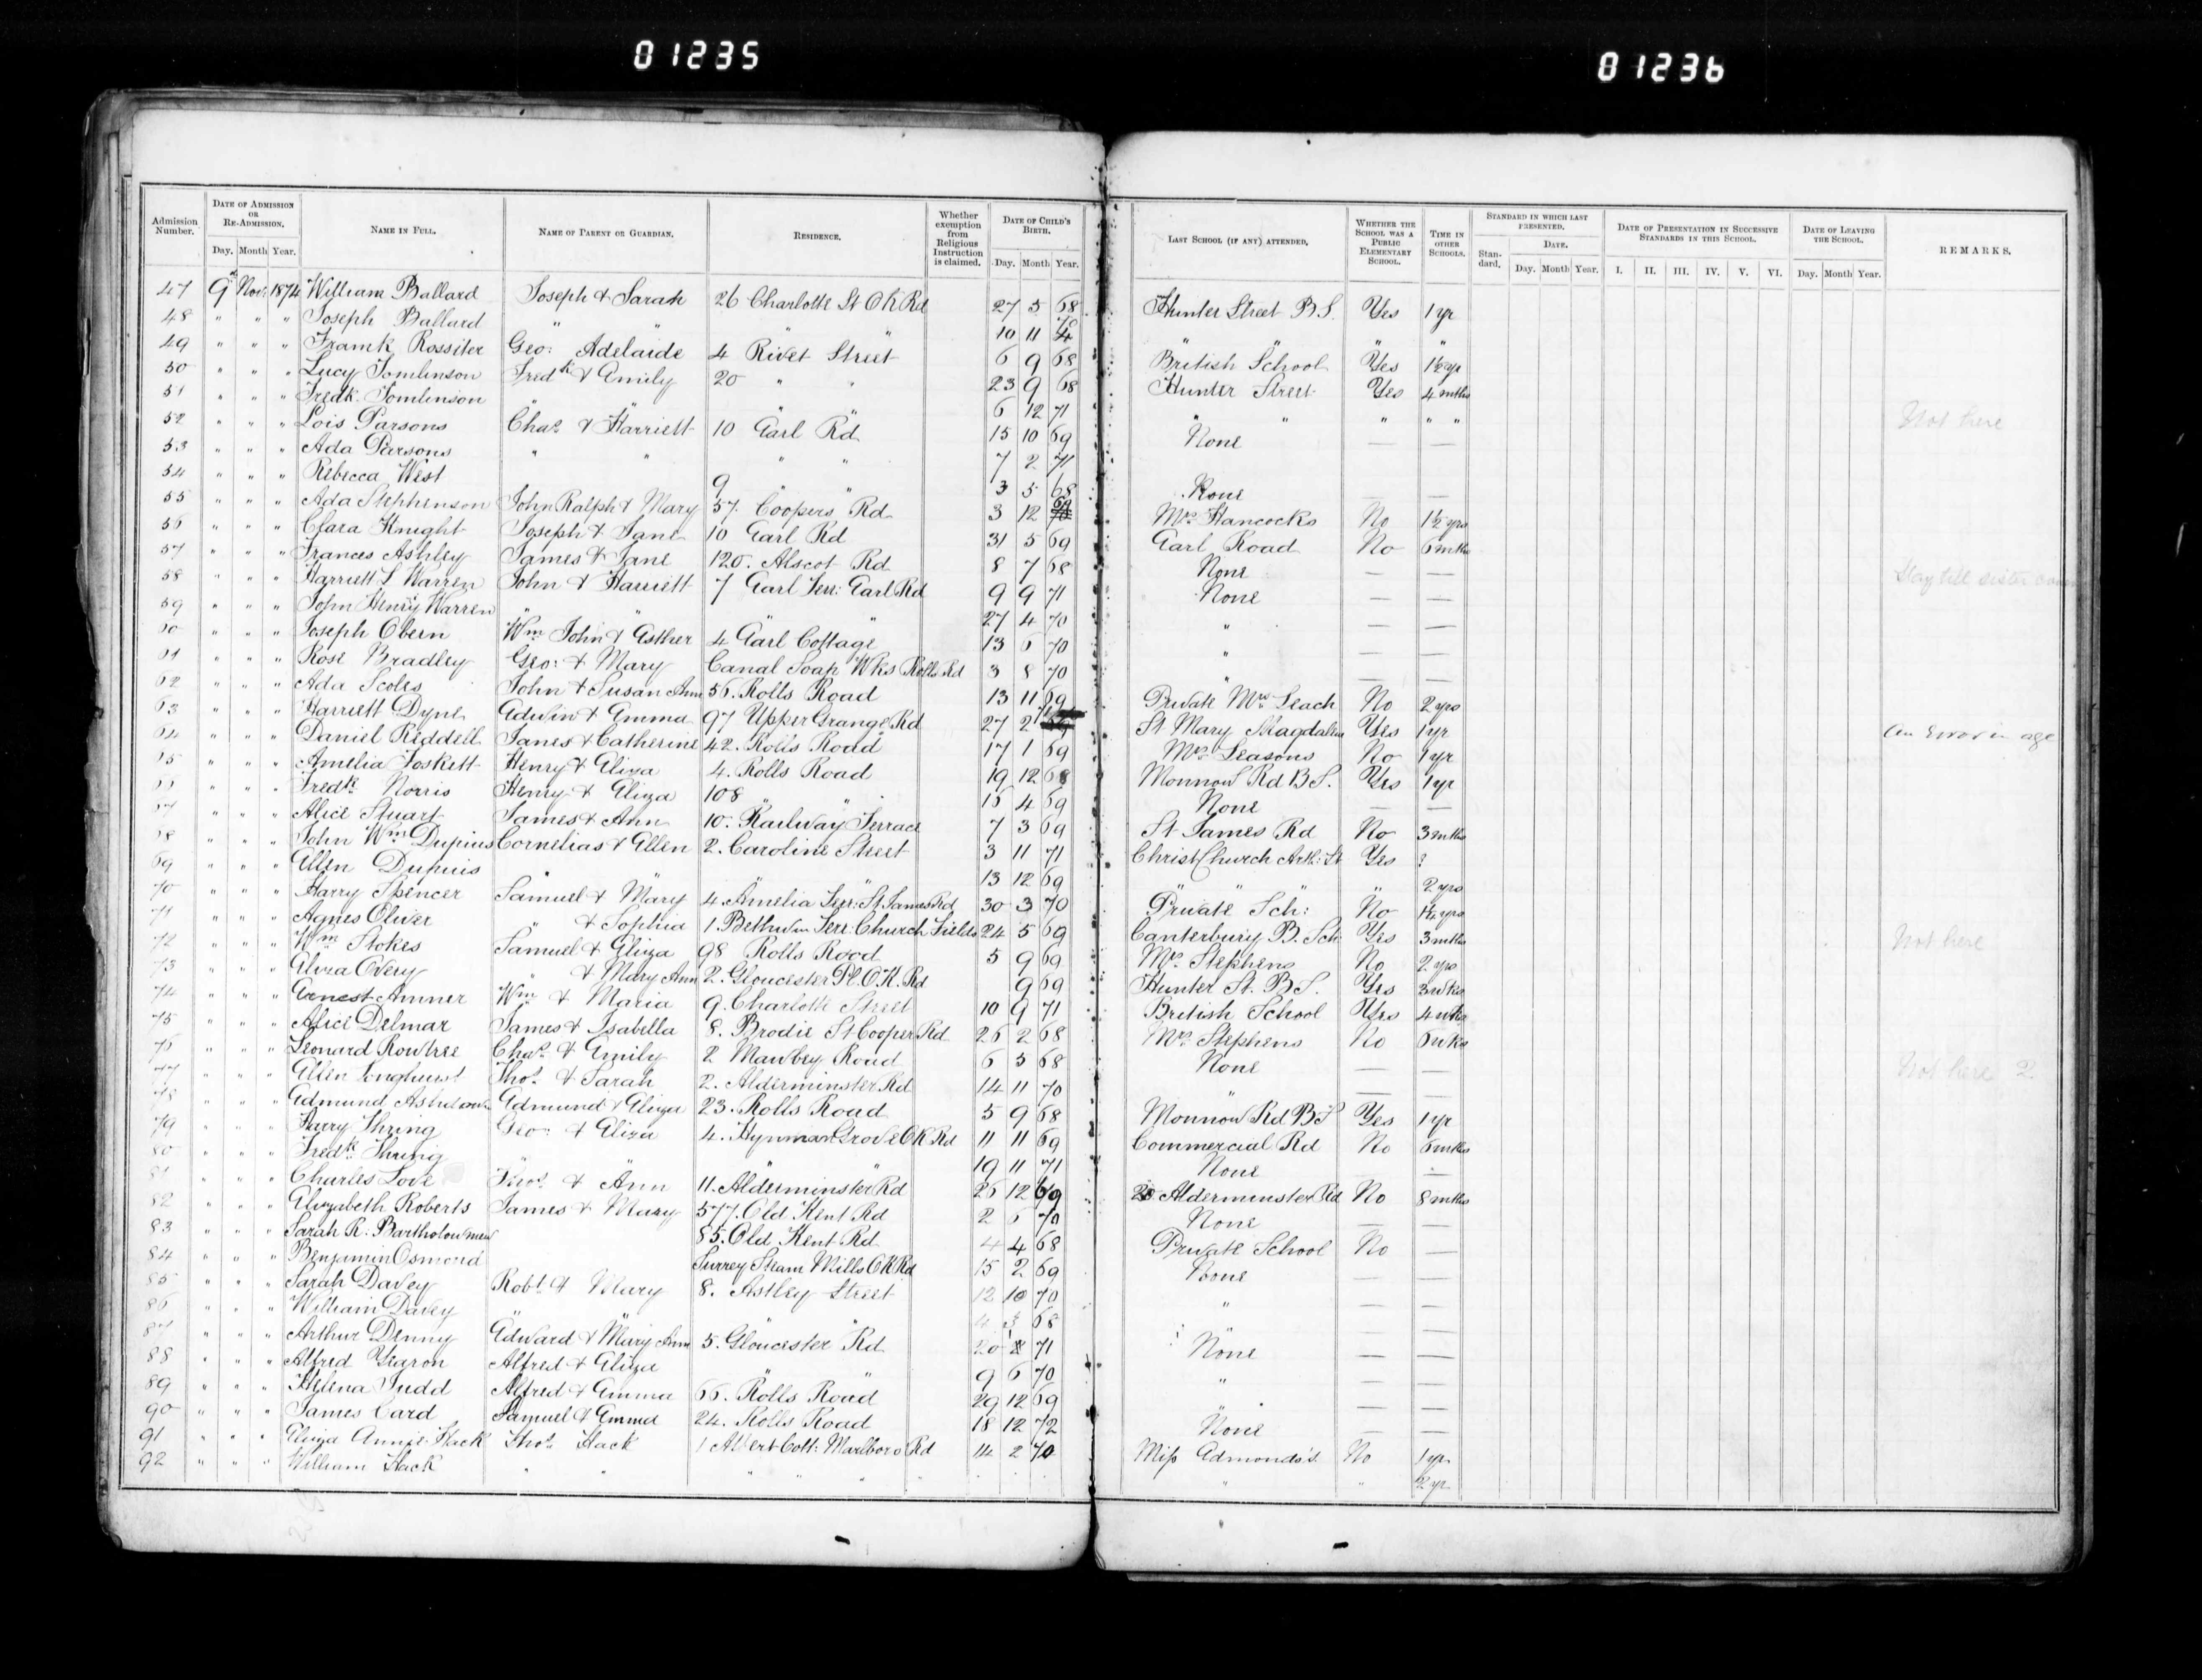 01235
01236
Admission Number.
DATE OF ADMISSION OR RE-ADMISSION.
Day. Month Year.
NAME IN FULL.
NAME OF PARENT OR GUARDIAN.
RESIDENCE.
Whether exemption from Religious Instruction is claimed.
DATE OF CHILD'S BIRTH.
Day. Month Year.
LAST SCHOOL (IF ANY) ATTENDED.
WHETHER THE SCHOOL WAS A PUBLIC ELEMENTARY SCHOOL.
TIME IN OTHER SCHOOLS.
STANDARD IN WHICH LAST PRESENTED.
Standard.
DATE.
Day. Month Year.
DATE OF PRESENTATION IN SUCCESSIVE STANDARDS IN THIS SCHOOL.
I. II. III. IV. V. VI.
DATE OF LEAVING THE SCHOOL.
Day. Month Year.
REMARKS.
47 9th Nov: 1874 William Ballard Joseph & Sarah 26 Charlotte St OK Rd 27 5 68 Hunter Street B.S. Yes 1 yr
48 " " " Joseph Ballard " " " " 10 11 " " "
49 " " " Frank Rossiter Geo: Adelaide 4 Rivet Street 6 9 68 British School Yes 1½ yr
50 " " " Lucy Tomlinson Fredk & Emily 20 " " 23 9 68 Hunter Street Yes 4 mths
51 " " " Fredk: Tomlinson " " " " 6 12 71 " " " " " Not here
52 " " " Lois Parsons Chas & Harriett 10 Earl Rd 15 10 69 None — —
53 " " " Ada Parsons " " " " 7 2 71
54 " " " Rebecca West 9 " " 3 5 68 None — —
55 " " " Ada Stephenson John Ralph & Mary 57. Coopers Rd 3 12 69 Mrs Hancocks No 1½ yrs
56 " " " Clara Knight Joseph & Jane 10 Earl Rd 31 5 69 Earl Road No 6 mths
57 " " " Frances Ashley James & Jane 120. Alscot Rd 8 7 68 None — — Stay till sister
58 " " " Harriett L Warren John & Harriett 7 Earl Terr: Earl Rd 9 9 71 None — —
59 " " " John Henry Warren " " " " 27 4 70 " — —
60 " " " Joseph Obern Wm John & Esther 4 Earl Cottage 13 6 70 " — —
61 " " " Rose Bradley Geo: & Mary Canal Soap Wks Rolls Rd 3 8 70 " — —
62 " " " Ada Scoles John & Susan Ann 56. Rolls Road 13 11 69 Private Mrs Leach No 2 yrs
63 " " " Harriett Dyne Edwin & Emma 97 Upper Grange Rd 27 2 St Mary Magdalen Yes 1 yr An Error in age
64 " " " Daniel Riddell James & Catherine 42. Rolls Road 17 1 69 Mrs Seasons No 1 yr
65 " " " Amelia Foskett Henry & Eliza 4. Rolls Road 19 12 68 Monnow Rd B.S. Yes 1 yr
66 " " " Fredk Norris Henry & Eliza 108 " " 15 4 69 None — —
67 " " " Alice Stuart James & Ann 10. Railway Terrace 7 3 69 St James Rd No 3 mths
68 " " " John Wm Dupuis Cornelias & Ellen 2. Caroline Street 3 11 71 Christ Church Arth: St Yes ?
69 " " " Ellen Dupuis " " " 13 12 69 " " " 2 yrs
70 " " " Harry Spencer Samuel & Mary 4. Amelia Terr: St James Rd 30 3 70 Private Sch: No 1¼ yrs
71 " " " Agnes Oliver " & Sophia 1. Bethwin Terr: Church Fields 24 5 69 Canterbury B. Sch Yes 3 mths Not here
72 " " " Wm Stokes Samuel & Eliza 98 Rolls Road 5 9 69 Mrs Stephens No 2 yrs
73 " " " Eliza Overy " & Mary Ann 2. Gloucester Pl. O.K. Rd 9 69 Hunter St. B.S. Yes 3 wks
74 " " " Ernest Amner Wm & Maria 9. Charlotte Street 10 9 71 British School Yes 4 wks
75 " " " Alice Delmar James & Isabella 8. Brodie St Cooper Rd 26 2 68 Mrs Stephens No 6 wks
76 " " " Leonard Rowtree Chas & Emily 2 Mawbey Road 6 5 68 None — — Not here 2
77 " " " Ellen Longhurst Thos & Sarah 2. Alderminster Rd 14 11 70 " — —
78 " " " Edmund Edmund & Eliza 23. Rolls Road 5 9 68 Monnow Rd BS Yes 1 yr
79 " " " Harry Thring Geo: & Eliza 4. Hynman Grove OK Rd 11 11 69 Commercial Rd No 6 mths
80 " " " Fredk Thring " " " " 19 11 71 None —
81 " " " Charles Love Thos & Ann 11. Alderminster Rd 26 12 69 28 Alderminster Rd No 8 mths
82 " " " Elizabeth Roberts James & Mary 577. Old Kent Rd 2 6 70 None — —
83 " " " Sarah R: Bartholomew 85. Old Kent Rd 4 4 68 Private School No —
84 " " " Benjamin Osmond Surrey Steam Mills OK Rd 15 2 69 None — —
85 " " " Sarah Davey Robt & Mary 8. Astley Street 12 10 70 " — —
86 " " " William Davey " " " " 4 3 68 " — —
87 " " " Arthur Denny Edward & Mary Ann 5. Gloucester Rd 20 71 None — —
88 " " " Alfred Yearon Alfred & Eliza 9 6 70 " — —
89 " " " Helena Judd Alfred & Emma 66. Rolls Road 29 12 69 " — —
90 " " " James Card Samuel & Emma 24. Rolls Road 18 12 72 None — —
91 " " " Eliza Annie Hack Thos Hack 1 Albert Cott: Marlboro Rd 14 2 70 Miss Edmonds's No 1 yr
92 " " " William Hack " " " " " " " " 2 yr